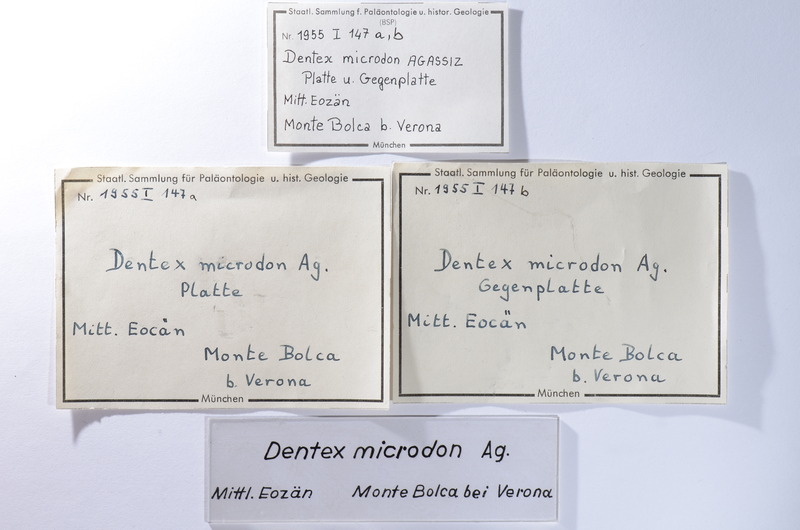 Staatl. Sammlung f. Paläontologie u. histor. Geologie
(BSP)
Nr. 1955 I 147 a,b
Dentex microdon AGASSIZ
Platte u. Gegenplatte
Mitt. Eozän
Monte Bolca b. Verona
München
Staatl. Sammlung für Paläontologie u. hist. Geologie
Nr. 1955 I 147 a
Dentex microdon Ag.
Platte
Mitt. Eocän
Monte Bolca
b. Verona
München
Staatl. Sammlung für Paläontologie u. hist. Geologie
Nr. 1955 I 147 b
Dentex microdon Ag.
Gegenplatte
Mitt. Eocän
Monte Bolca
b. Verona
München
Dentex microdon Ag.
Mittl. Eozän Monte Bolca bei Verona